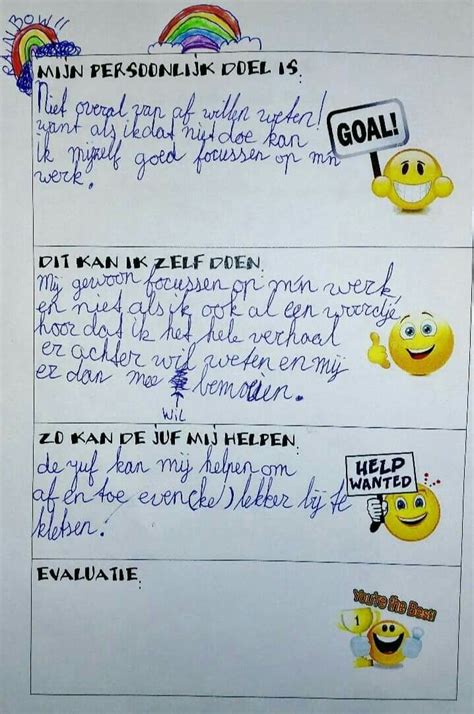 RAINBOW!!
MIJN PERSOONLIJK DOEL IS:
Niet overal van af willen weten!
want als ik dat niet doe kan
ik mijzelf goed focussen op m'n
werk.
GOAL!
DIT KAN IK ZELF DOEN:
Mij gewoon focussen op m'n werk,
en niet als ik ook al een woordje
hoor dat ik het hele verhaal
er achter wil weten en mij
er dan mee bemoeien.
wil
ZO KAN DE JUF MIJ HELPEN:
de juf kan mij helpen om
af en toe even(ke) lekker bij te
kletsen!
HELP
WANTED
EVALUATIE:
You're the Best!
1